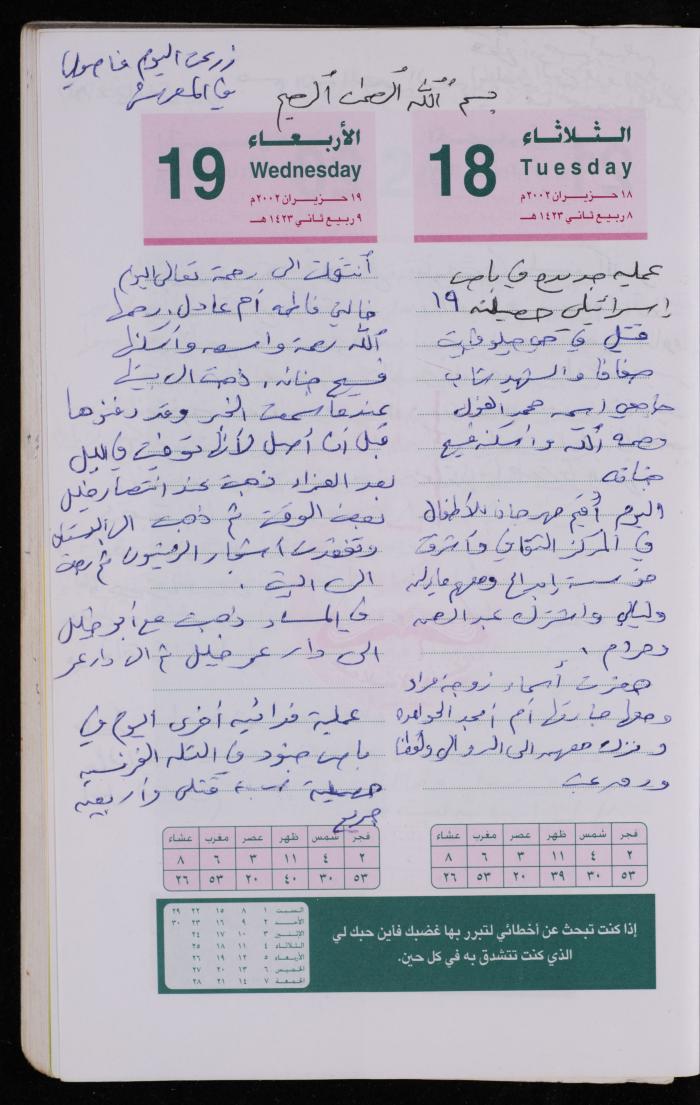 زرعت اليوم فاصوليا
في المعرش
بسم الله الرحمن الرحيم
الثلاثاء
18
Tuesday
١٨ حزيران ٢٠٠٢م
٨ ربيع ثاني ١٤٢٣ هـ
عمليه جديده في باص
إسرائيلي حصيلته ١٩
قتيل في حي جيلو
والشهيد شاب
اسمه محمد الغول
رحمه الله وأسكنه فسيح
جناته
اليوم أقيم مهرجان للأطفال
في المركز الثقافي وأشرف
مؤسسة إبداع ومعهم
وليالي واشترك عبد الرحمن
ومرام .
حضرت أسماء زوجة مراد
ومعها جارتها أم أمجد
ونزلت معهم الى
الأربعاء
19
Wednesday
١٩ حزيران ٢٠٠٢م
٩ ربيع ثاني ١٤٢٣ هـ
أنتقلت الى رحمة تعالى اليوم
خالتي فاطمه أم عادل ، رحمها
الله رحمة واسعه وأسكنها
فسيح جنانه ، ذهبت الى بيت
عندما سمعت الخبر وقد دفنوها
قبل أن أصل لأنها توفيت في الليل
بعد العزاء ذهبت عند انتصار خليل
بعض الوقت ثم ذهبت الى البستان
وتفقدت أشجار الزيتون ثم رجعت
الى البيت .
في المساء ذهبت مع أبو خليل
الى دار عمر خليل ثم الى دار عمر
عملية فدائيه أخرى اليوم في
باص جنود في التله الفرنسيه
حصيلة سبعة قتلى وأربعين
جريح
فجر شمس ظهر عصر مغرب عشاء
٢ ٤ ١١ ٣ ٦ ٨
٥٣ ٣٠ ٣٩ ٢٠ ٥٣ ٢٦
فجر شمس ظهر عصر مغرب عشاء
٢ ٤ ١١ ٣ ٦ ٨
٥٣ ٣٠ ٤٠ ٢٠ ٥٣ ٢٦
إذا كنت تبحث عن أخطائي لتبرر بها غضبك فاين حبك لي
الذي كنت تتشدق به في كل حين.
السبت ١ ٨ ١٥ ٢٢ ٢٩
الأحد ٢ ٩ ١٦ ٢٣ ٣٠
الإثنين ٣ ١٠ ١٧ ٢٤
الثلاثاء ٤ ١١ ١٨ ٢٥
الأربعاء ٥ ١٢ ١٩ ٢٦
الخميس ٦ ١٣ ٢٠ ٢٧
الجمعة ٧ ١٤ ٢١ ٢٨